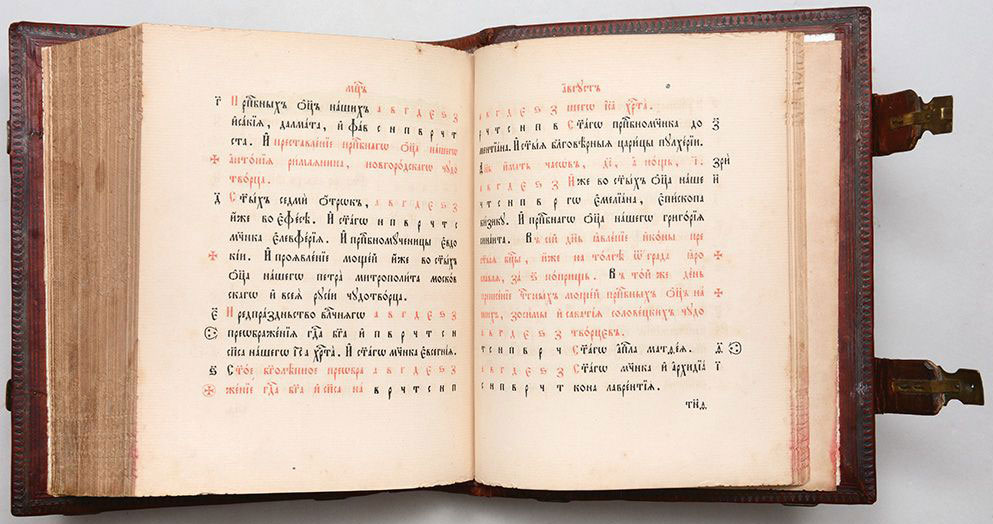 мц҃ъ
г҃ И прпⷣбныхъ ѻц҃ъ нашихъ а в г д е ѕ з
и҆саа́кїа, далма́та, и҆ фа́в с н п в р ч т
ста. И҆ преставле́нїе прпⷣбнагѡ ѻц҃а на́шегѡ
анто́нїа ри́млѧнина, новгоро́дскагѡ чꙋдо
тво́рца.
д҃ С҃ты́хъ седмѝ ѻ҆́трѡкъ, а в г д е ѕ з
и҆́же во є҆фе́сѣ. И҆ ст҃а́гѡ н п в р ч т с
мч҃нка є҆леѵфе́рїа. И҆ прпⷣбномꙋ́ченицы є҆вдо
кі́и. И҆ проѧвле́нїе моще́й и҆́же во ст҃ы́хъ
ѻ҆ц҃а на́шегѡ петра̀ митрополи́та моско́в
скагѡ и҆ всеѧ̀ рꙋсі́и чꙋдотво́рца.
є҃ И҆ предпра́здньство влⷣчнѧгѡ а в г д е ѕ з
преѡбраже́нїѧ гдⷭ҇а бг҃а и҆ п в р ч т с н
сп҃са на́шегѡ і҆с҃а хрⷭ҇та̀. И҆ ст҃а́гѡ мч҃нка є҆ѵсегні́а.
ѕ҃ С҃то́е бг҃олѣ́пное преѡбра а в г д е ѕ з
же́нїе гдⷭ҇а бг҃а и҆ сп҃са на в р ч т с н п
а҆́вгꙋстъ
а в г д е ѕ з шегѡ і҆с҃а хрⷭ҇та̀.
р ч т с н п в С҃та́гѡ прпⷣбномч҃нка до з҃
ментїа́на. И҆ ст҃ы́ѧ бл҃говѣ́рныѧ цари́цы пꙋлхе́рїи.
Днь и҆́мать часо́въ, д҃і, а҆ но́щь, і҃. зри
а в г д е ѕ з И҆́же во ст҃ы́хъ ѻ҆ц҃а на́ше и҃
ч т с н п в р гѡ є҆меліа́на, є҆пі́скопа
ки́зикꙋ. И҆ прпⷣбнагѡ ѻ҆ц҃а на́шегѡ григо́рїа
сина́ита. В се́й днь ꙗ҆вле́нїе и҆ко́ны пре
ст҃ы́ѧ бц҃ы, и҆́же на то́лгѣ ѿ гра́да ꙗ҆ро
сла́влѧ, за попри́щь. В то́й же де́нь
принесе́нїе чⷭ҇тны́хъ моще́й прпⷣбныхъ ѻ҆ц҃ъ на
шихъ, зоси́мы и҆ сава́тїа солове́цкихъ чꙋдо
а в г д е ѕ з тво́рцевъ.
т с н п в р ч С҃та́гѡ а҆пⷭ҇ла матѳе́ѧ. ѳ҃
а в г д е ѕ з С҃та́гѡ мч҃нка и҆ а҆рхидїа і҃
с н п в р ч т кона лавре́нтїа.